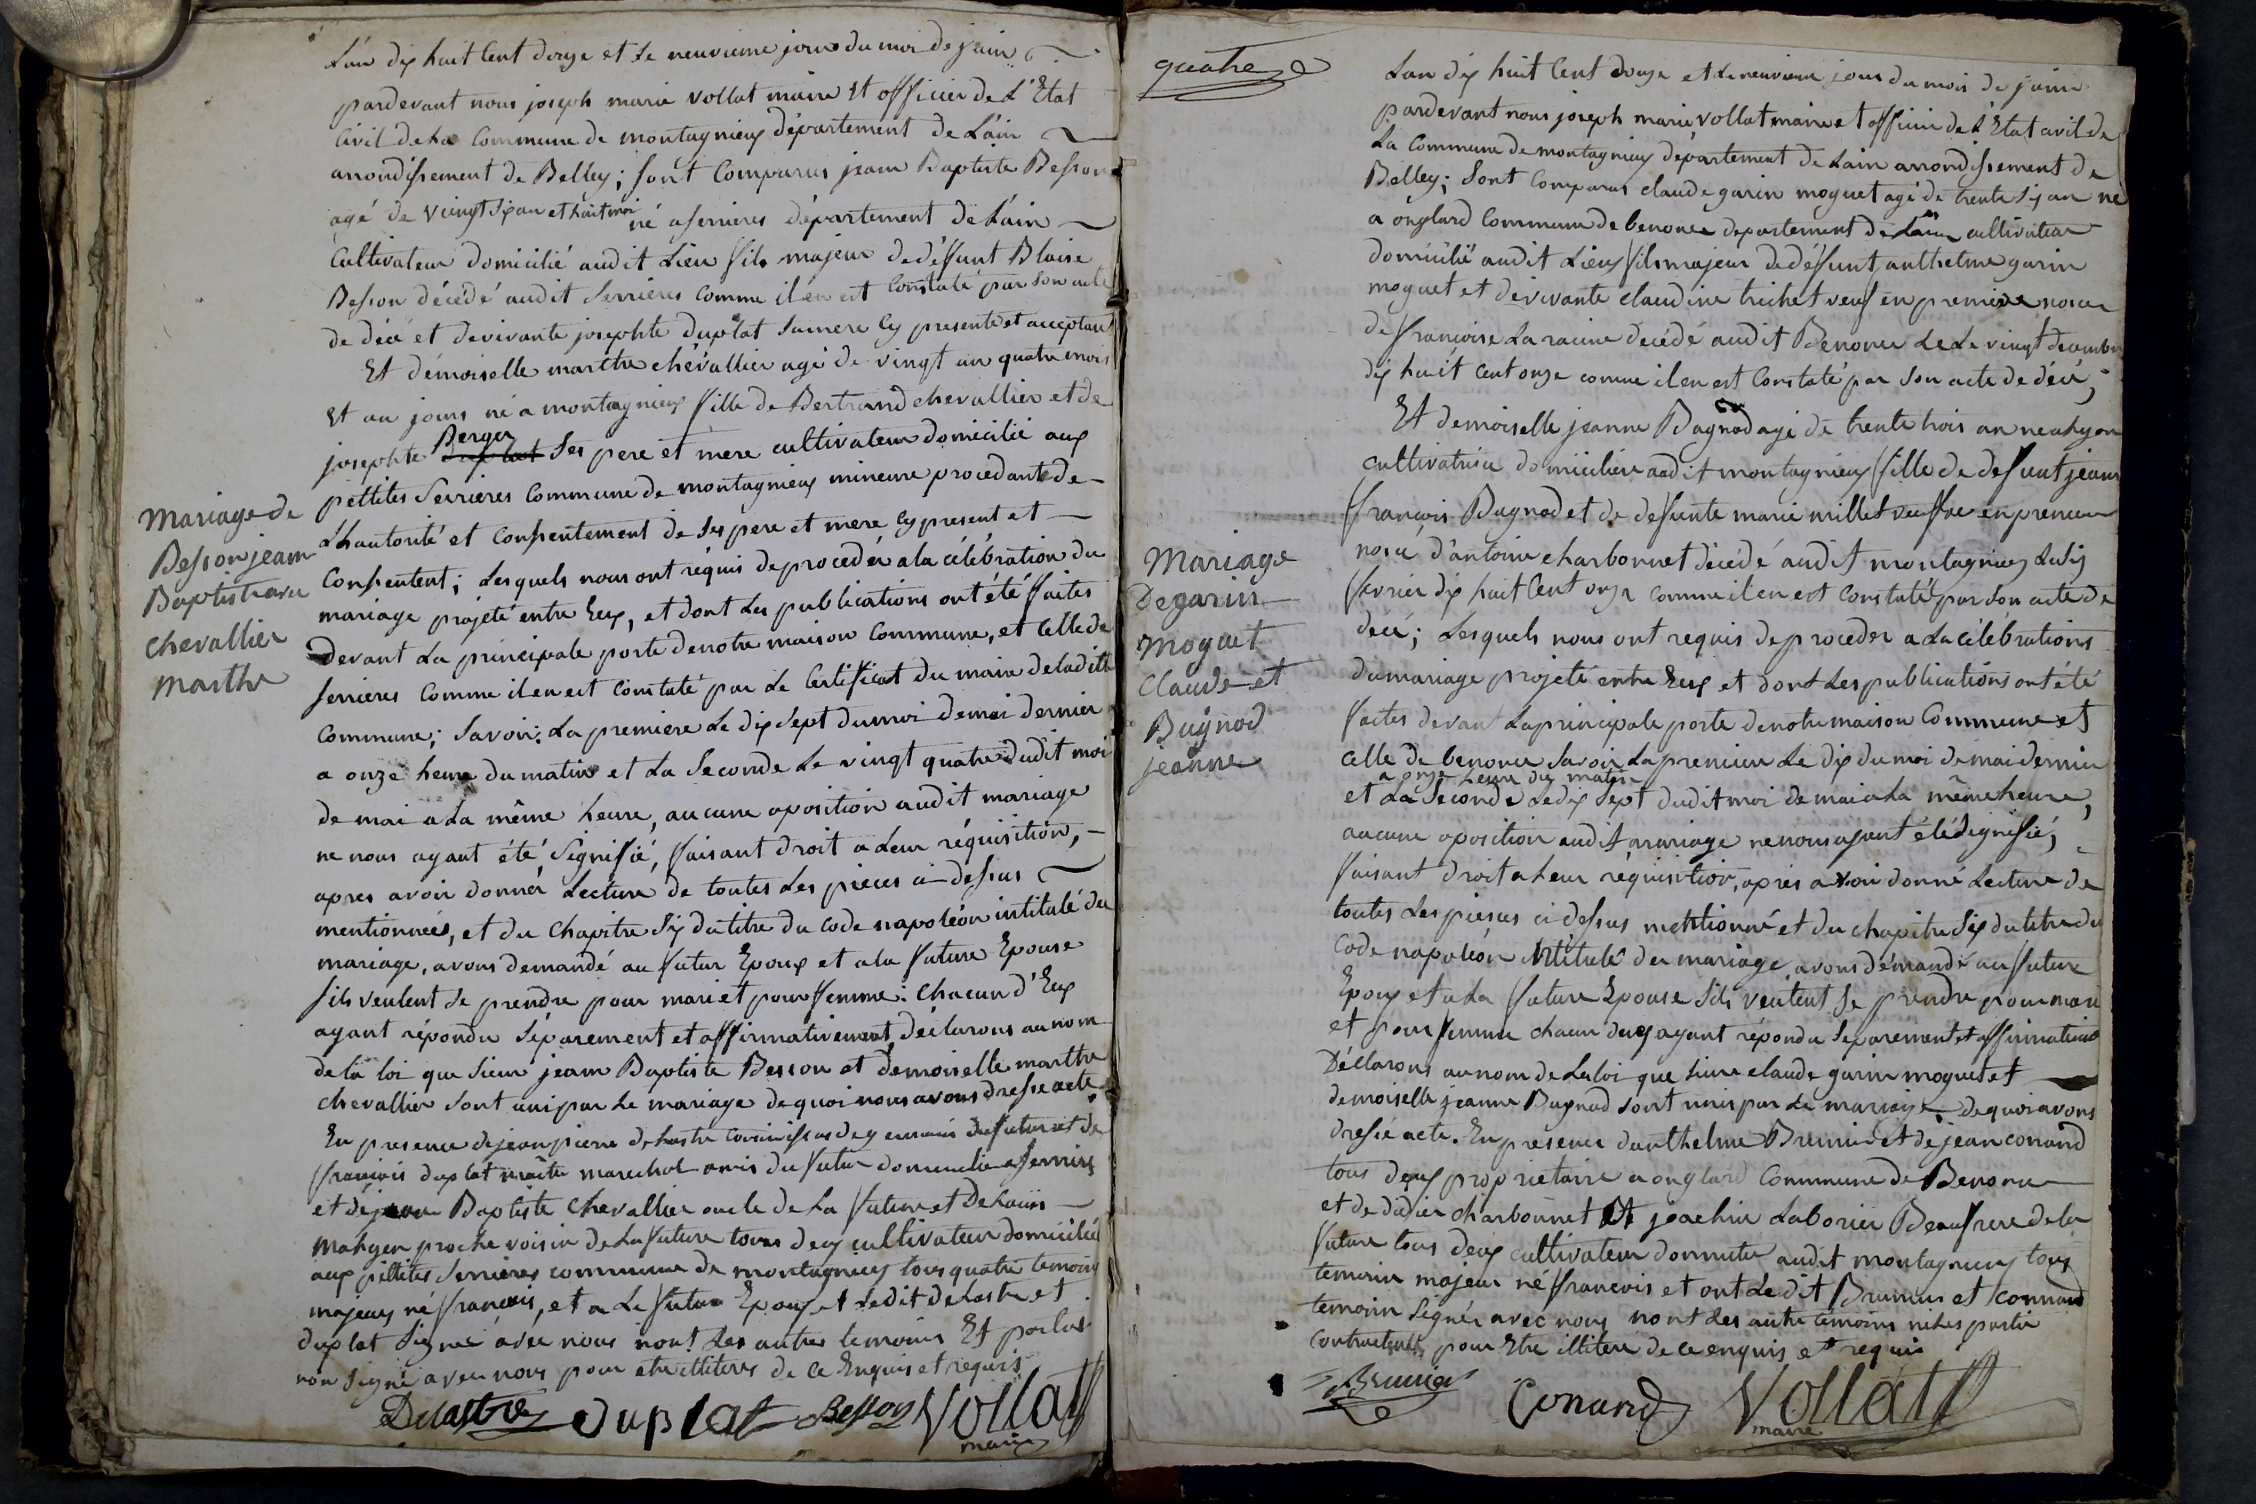 L'an dix huit Cent douze et le neuvieme jour du moi de juin
pardevant nous joseph marie vollat maire et officier de L'Etat
Civil de la Commune de montagnieux département de L'ain
arrondissement de Belley ; sont Comparus jean Baptiste Besson
agé de vingt six an et huit moi né a serrieres département de L'ain
Cultivateur domicilié audit Lieu fils majeur de déffunt Blaise
Besson décédé audit Serrieres comme il en est Constaté par son acte
de décé et de vivante josephte duplat sa mere Cy presente et acceptant
Et démoiselle marthe chévallier agé de vingt an quatre mois
Et un jours né a montagnieux fille de Bertrand chevallier et de
josephte Berger ses pere et mere cultivateur domicilié aux
pettites Serrieres Commune de montagnieux mineure procédante de
L'hautorité et Consentement de ses pere et mere Cy present et
Consentent ; Lesquels nous ont réquis de proceder a la célébration du
mariage projeté entre Eux, et dont Les publications ont été faites
Devant La principale porte de notre maison Commune, et Celle de
serrieres Comme il en est Constaté par Le Certificat du maire de ladite
Commune ; Savoir : La premiere Le dix sept du moi de mai dernier
a onze heure du matin et La Seconde Le vingt quatre dudit moi
de mai a La même heure, aucune oposition audit mariage
ne nous ayant été Signifié, faisant droit a Leur réquisition,
apres avoir donnér Lecture de toutes Les pieces ci-dessus
mentionnées, et du Chapitre Six du titre du Code napoléon intitulé du
mariage, avons demandé au futur Epoux et a la future Epouse
sils veulent se prendre pour mari et pour femme : Chacun d'Eux
ayant répondu Séparement et affirmativement, déclarons au nom
de la loi que Sieur jean Baptiste Besson et demoiselle marthe
chevallier sont uni par Le mariage de quoi nous avons dresse acte
En presence de jean pierre delastre
françois duplat maître marechal amis du futur domicilié a serrieres
et de jean Baptiste Chevallier oncle de La future et de Louis
Mahyer proche voisin de La future tous deux cultivateur domiciliée
aux pettites Serrieres commune de montagnieux tous quatre temoins
majeurs né francais, et a Le futur Epoux et Ledit delastre et
duplat Signé avec nous nont Les autres temoins Et parties
non Signé avec nous pour etre illiteres de Ce Enquis et requis
Delastre duplat Besson Vollat
maire
mariage de
Besson jean
Baptiste avec
chevallier
marthe
quatre
L'an dix huit Cent douze et Le neuvieme jour du moi de juin
pardevant nous joseph marie vollat maire et officier de L'Etat civil de
La Commune de montagnieux département de Lain arrondissement de
Belley ; Sont Comparus claude garin moguet agé de trente six an né
a onglard Commune de benonce departement de Lain cultivateur
domicilié audit Lieu fils majeur de déffunt anthelme garin
moguet et de vivante claudine trichet veuf en premiere noces
de françoise La racine decédé audit Benonce Le Le vingt decembre
dix huit Cent onze comme il en est Constaté par Son acte de décé ;
Et demoiselle jeanne Bugnod agé de trente trois an ne a
cultivatrice domiciliée audit montagnieux fille de defunt jean
françois Bugnod et de defunte marie millet veufve en premier
noce d'antoine charbonnet décédé audit montagnieux Le six
fevrier dix huit Cent onze comme il en est Constaté par Son acte de
décé ; Lesquels nous ont requis de proceder a La célebrations
du mariage projeté entre Eux et dont Les publications ont été
faites devant La principale porte de notre maison Commune et
celle de benonce savoir La premiere Le dix du moi de mai dernier
a onze heure du matin
et La Seconde Le dix Sept dudit moi de mai a La même heure,
aucune oposition audit mariage ne nous ayant été Signifié ;
faisant droit a Leur réquisition, apres avoir donné Lecture de
toutes Les pieces ci dessus mentionné et du chapitre Six du titre du
Code napoléon intitulé du mariage avons démandé au future
Epoux et a La future Epouse Sils veulent se prendre pour mari
et pour femme chacun deux ayant répondu Séparement et affirmativ
Déclarons au nom de La loi que Sieur claude garin moguet et
demoiselle jeanne Bugnod sont unis par Le mariage de quoi avons
dressé acte. En presence danthelme Brunier et de jean conand
tous deux proprietaire a onglard Commune de Benonce
et de didier charbonnet Et joachin Laborier Beaufrere de la
future tous deux cultivateur domicilie audit montagnieux tous
temoin majeur né francois et ont Le dit Brunier et Connand
temoin Signér avec nous nont Les autre temoins ni Les partie
Contractente pour Etre illitere de ce enquis et requis
Brunier Conand Vollat
maire
Mariage
De garin
moguet
Claude et
Bugnod
jeanne